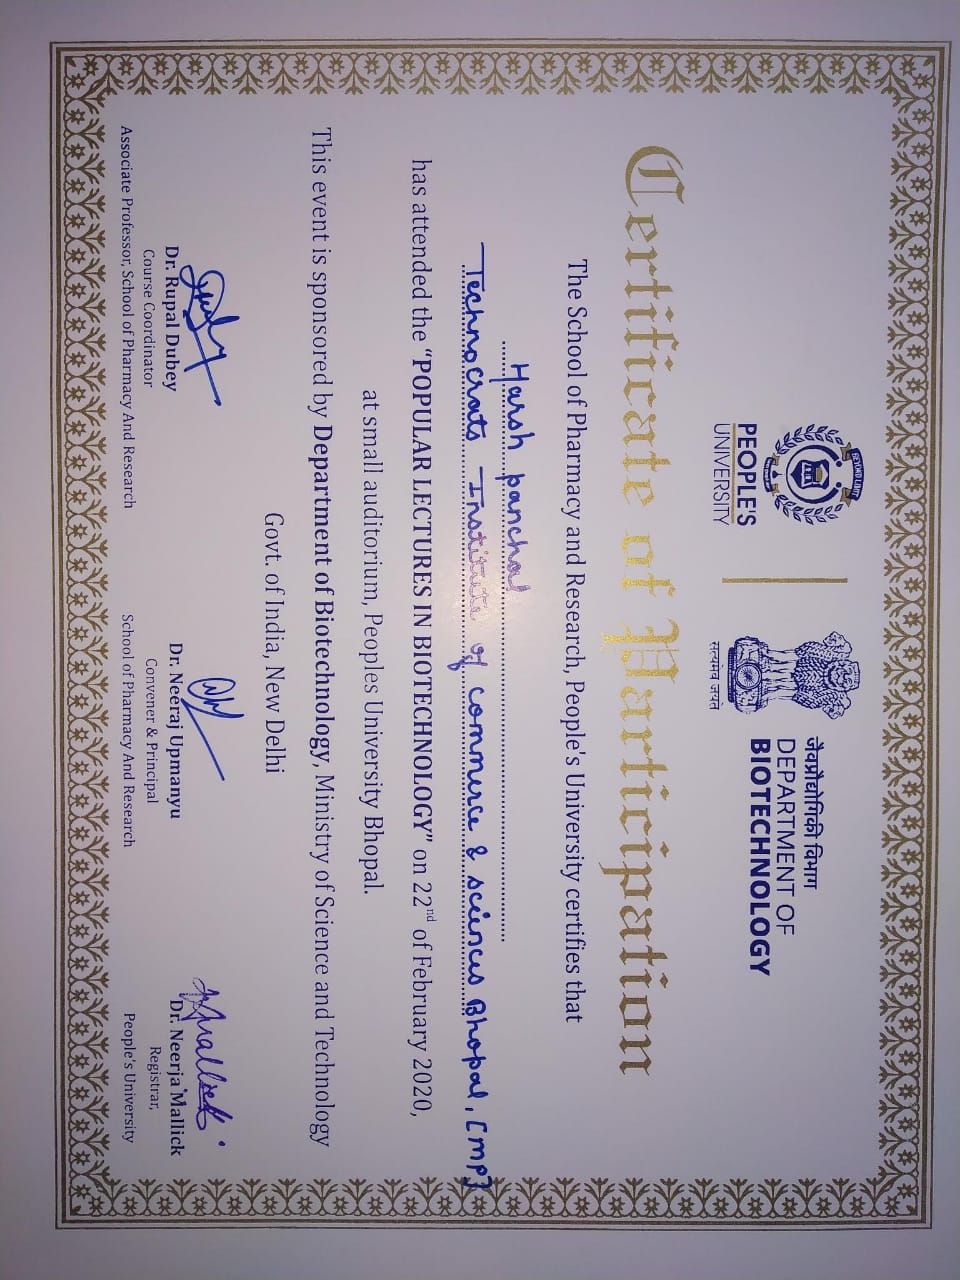 BEYOND LIMIT
PEOPLE'S
UNIVERSITY
सत्यमेव जयते
जैवप्रौद्योगिकी विभाग
DEPARTMENT OF
BIOTECHNOLOGY
Certificate of Participation
The School of Pharmacy and Research, People's University certifies that
Harsh panchal
Technocrats Institute of commerce & sciences Bhopal, [MP]
has attended the “POPULAR LECTURES IN BIOTECHNOLOGY” on 22nd of February 2020,
at small auditorium, Peoples University Bhopal.
This event is sponsored by Department of Biotechnology, Ministry of Science and Technology
Govt. of India, New Delhi
Dr. Rupal Dubey
Course Coordinator
Associate Professor, School of Pharmacy And Research
Dr. Neeraj Upmanyu
Convener & Principal
School of Pharmacy And Research
Dr. Neerja Mallick
Registrar,
People's University